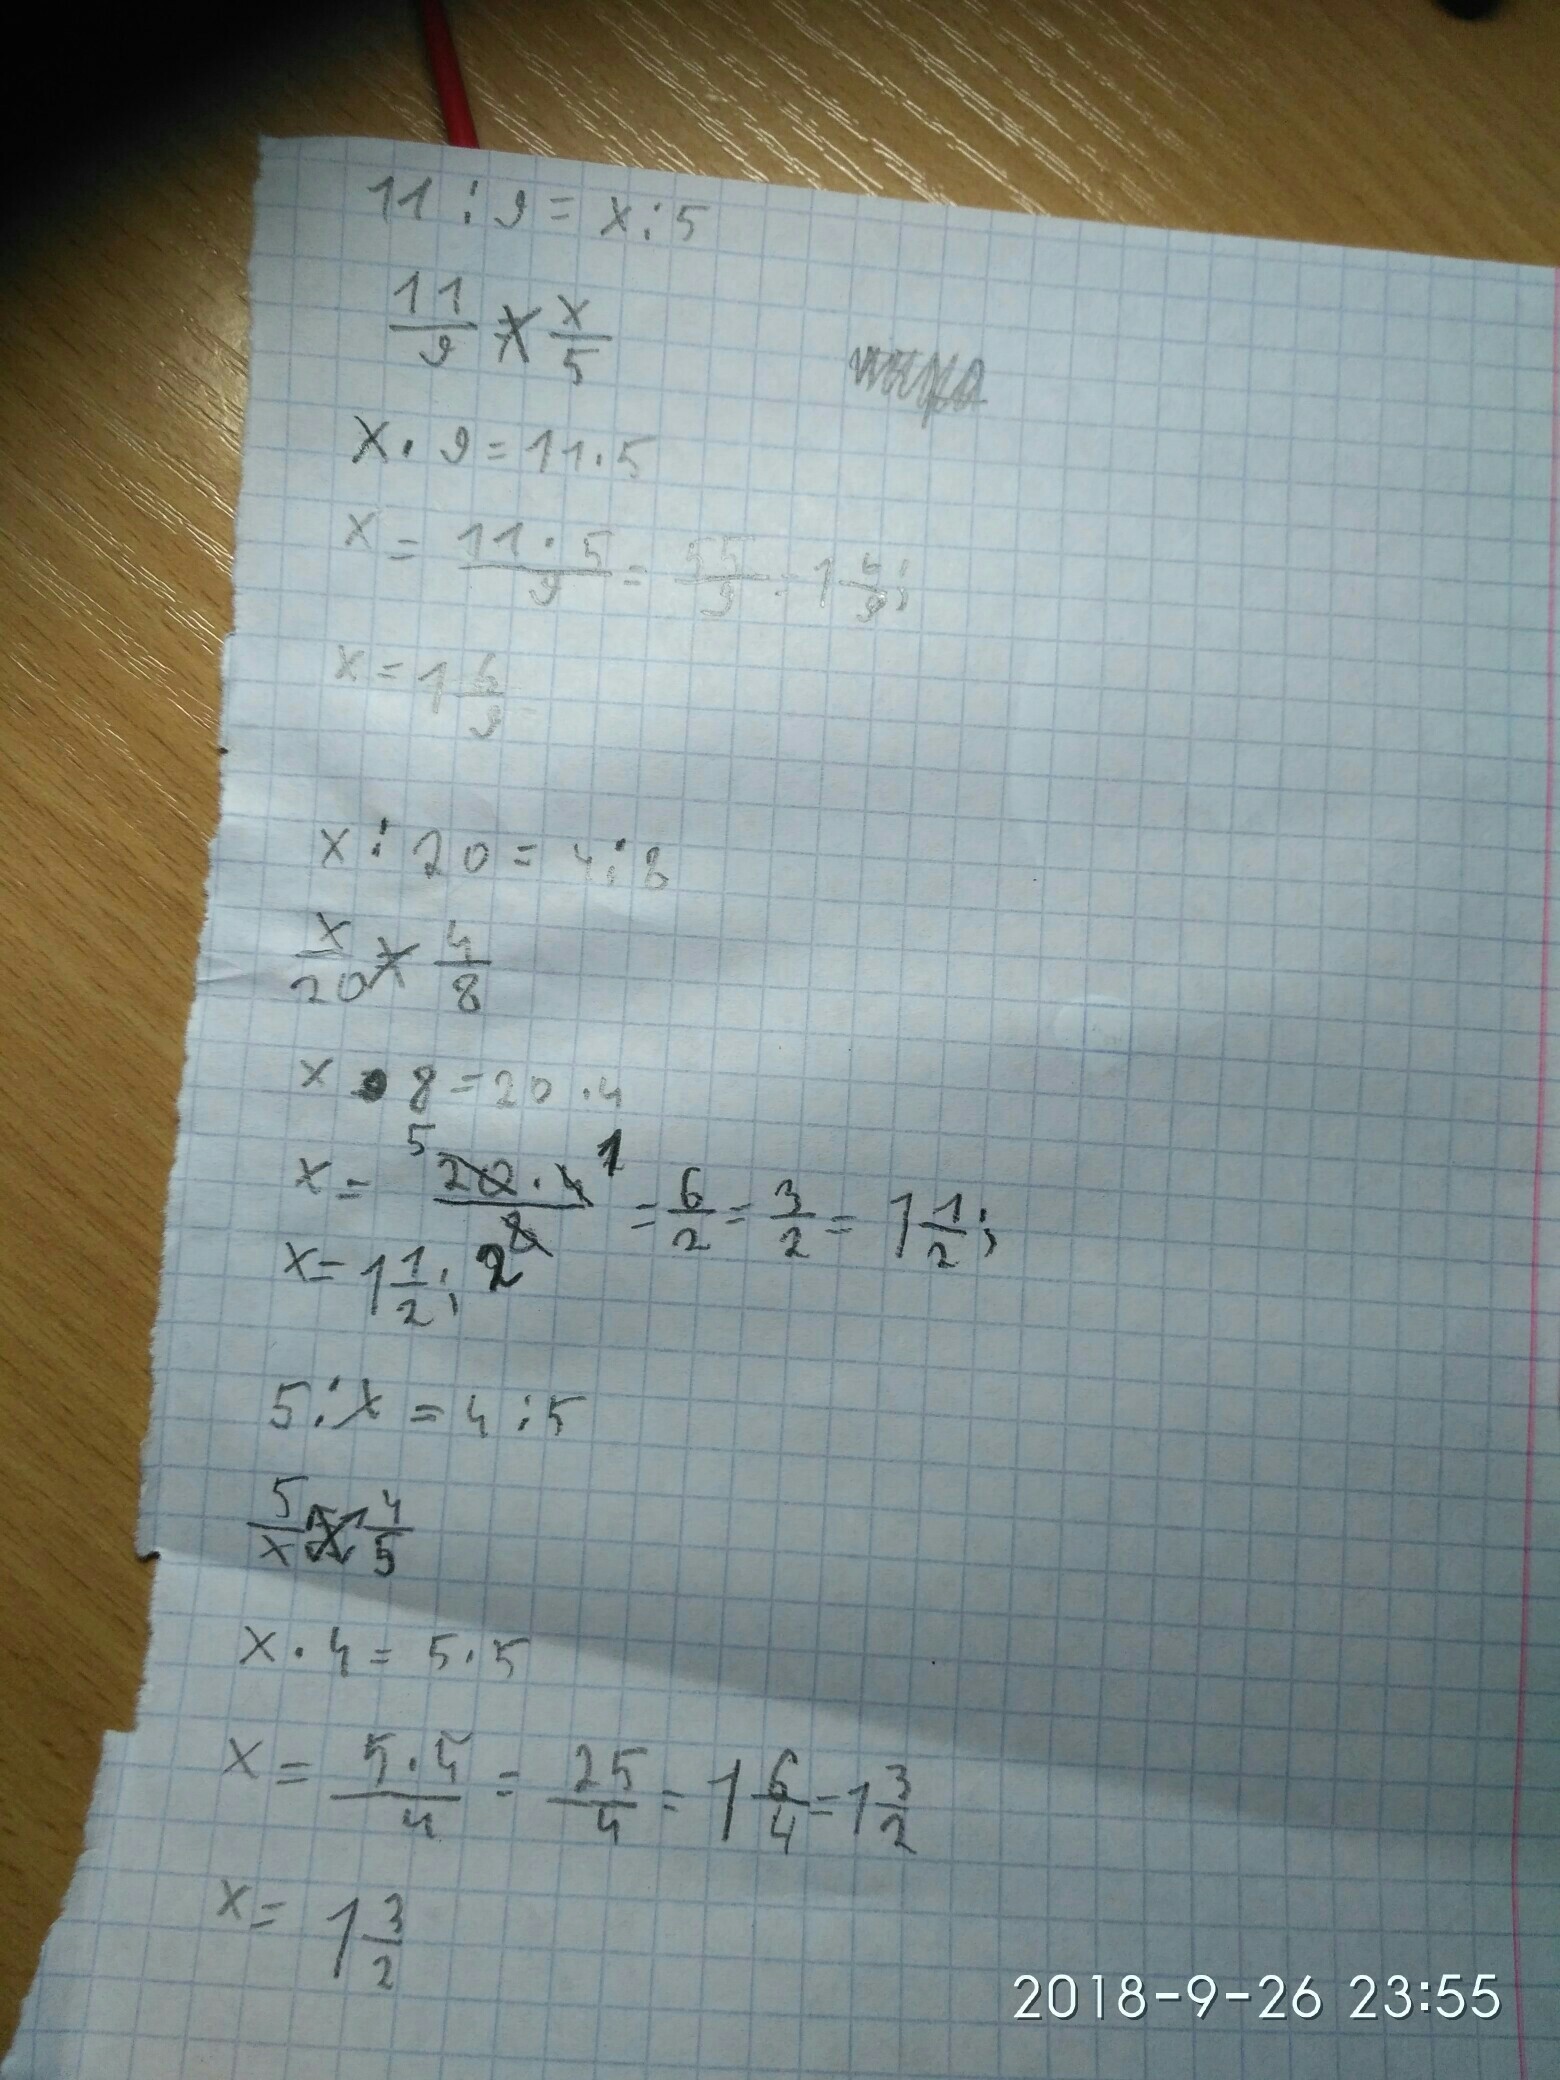 11 : 9 = x : 5
11/9 = x/5
x · 9 = 11 · 5
x = 11 · 5/9 = 55/9 = 1 5/9;
x = 1 5/9
x : 20 = 4 : 8
x/20 = 4/8
x · 8 = 20 · 4
x = 5 20 · 4 1/8 2 = 6/2 = 3/2 = 1 1/2;
x = 1 1/2;
5 : x = 4 : 5
5/x = 4/5
x · 4 = 5 · 5
x = 5 · 5/4 = 25/4 = 1 6/4 = 1 3/2
x = 1 3/2
2018-9-26 23:55